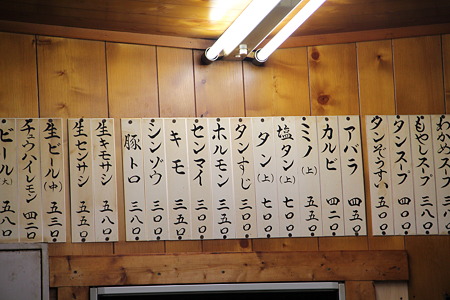 わかめスープ
もやしスープ 三八〇
タンスープ 四〇〇
タンぞうすい 五五〇
アバラ 四五〇
カルビ 四二〇
ミノ(上) 五五〇
塩タン(上) 七〇〇
タン(上) 七〇〇
タンすじ 三〇〇
ホルモン 三五〇
センマイ 三〇〇
キモ 三五〇
シンゾウ 三〇〇
豚トロ 三八〇
生キモサシ 五五〇
生センサシ 五五〇
生ビール(中) 五三〇
チュウハイレモン 四二〇
ビール(大) 五八〇